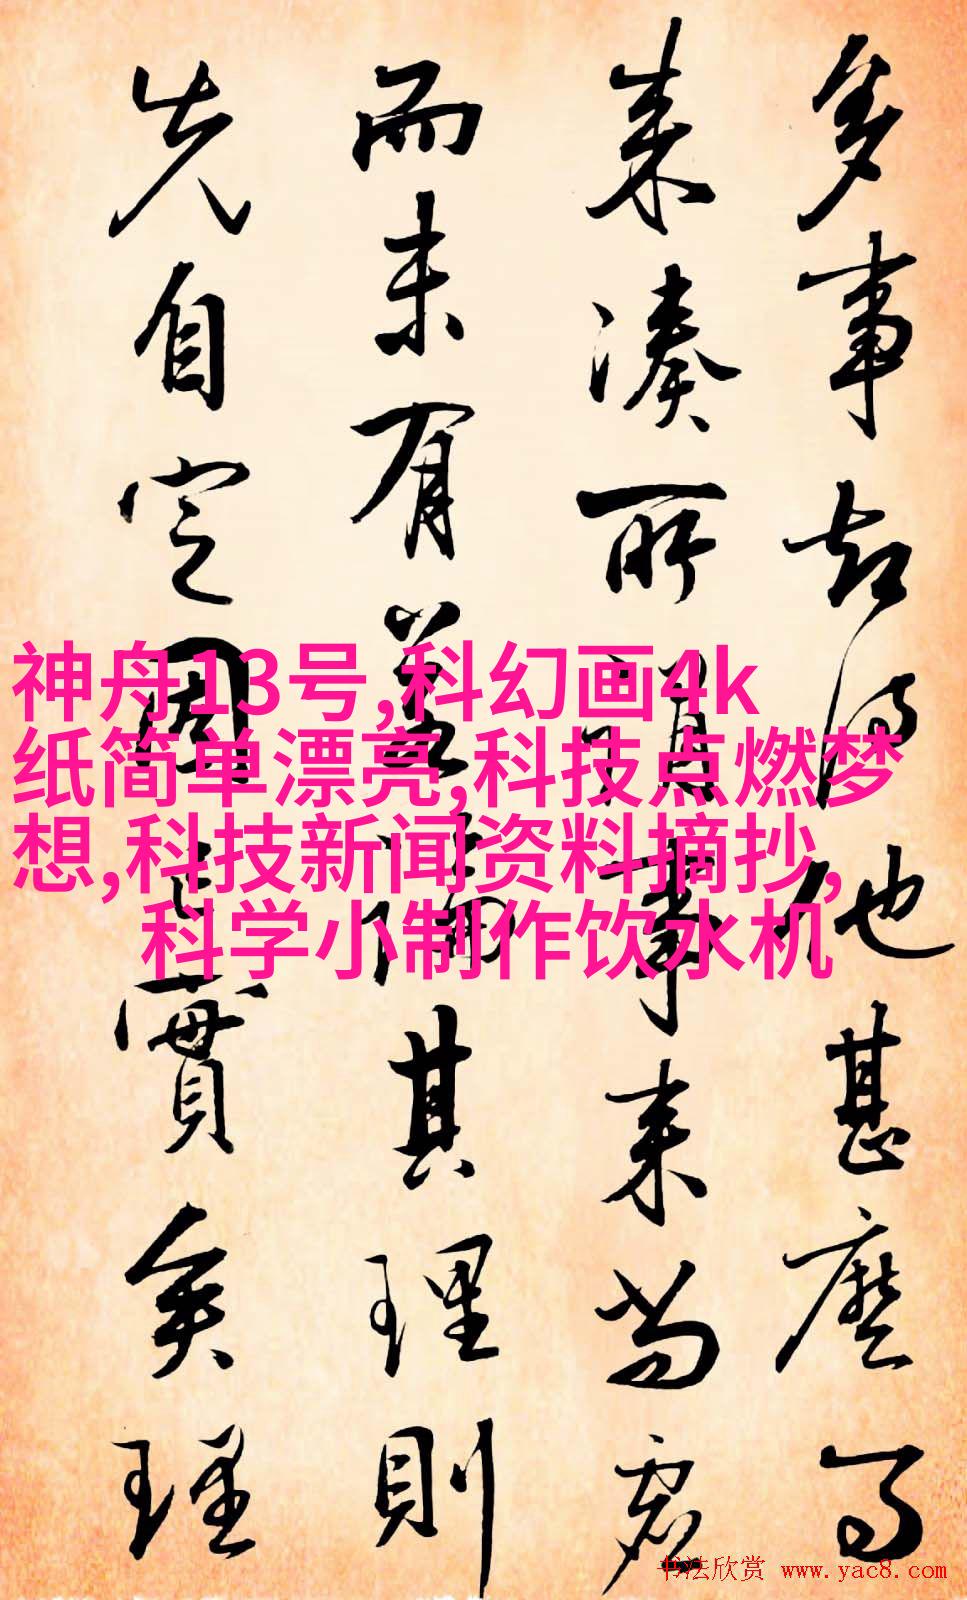 多事却得他甚麼
来湊所謂事来尚虚
而未有盖涵其理則
先自定固已實矣理
神舟13号,科幻画4k
纸简单漂亮,科技点燃梦
想,科技新闻资料摘抄,
科学小制作饮水机
书法欣赏 www.yac8.com